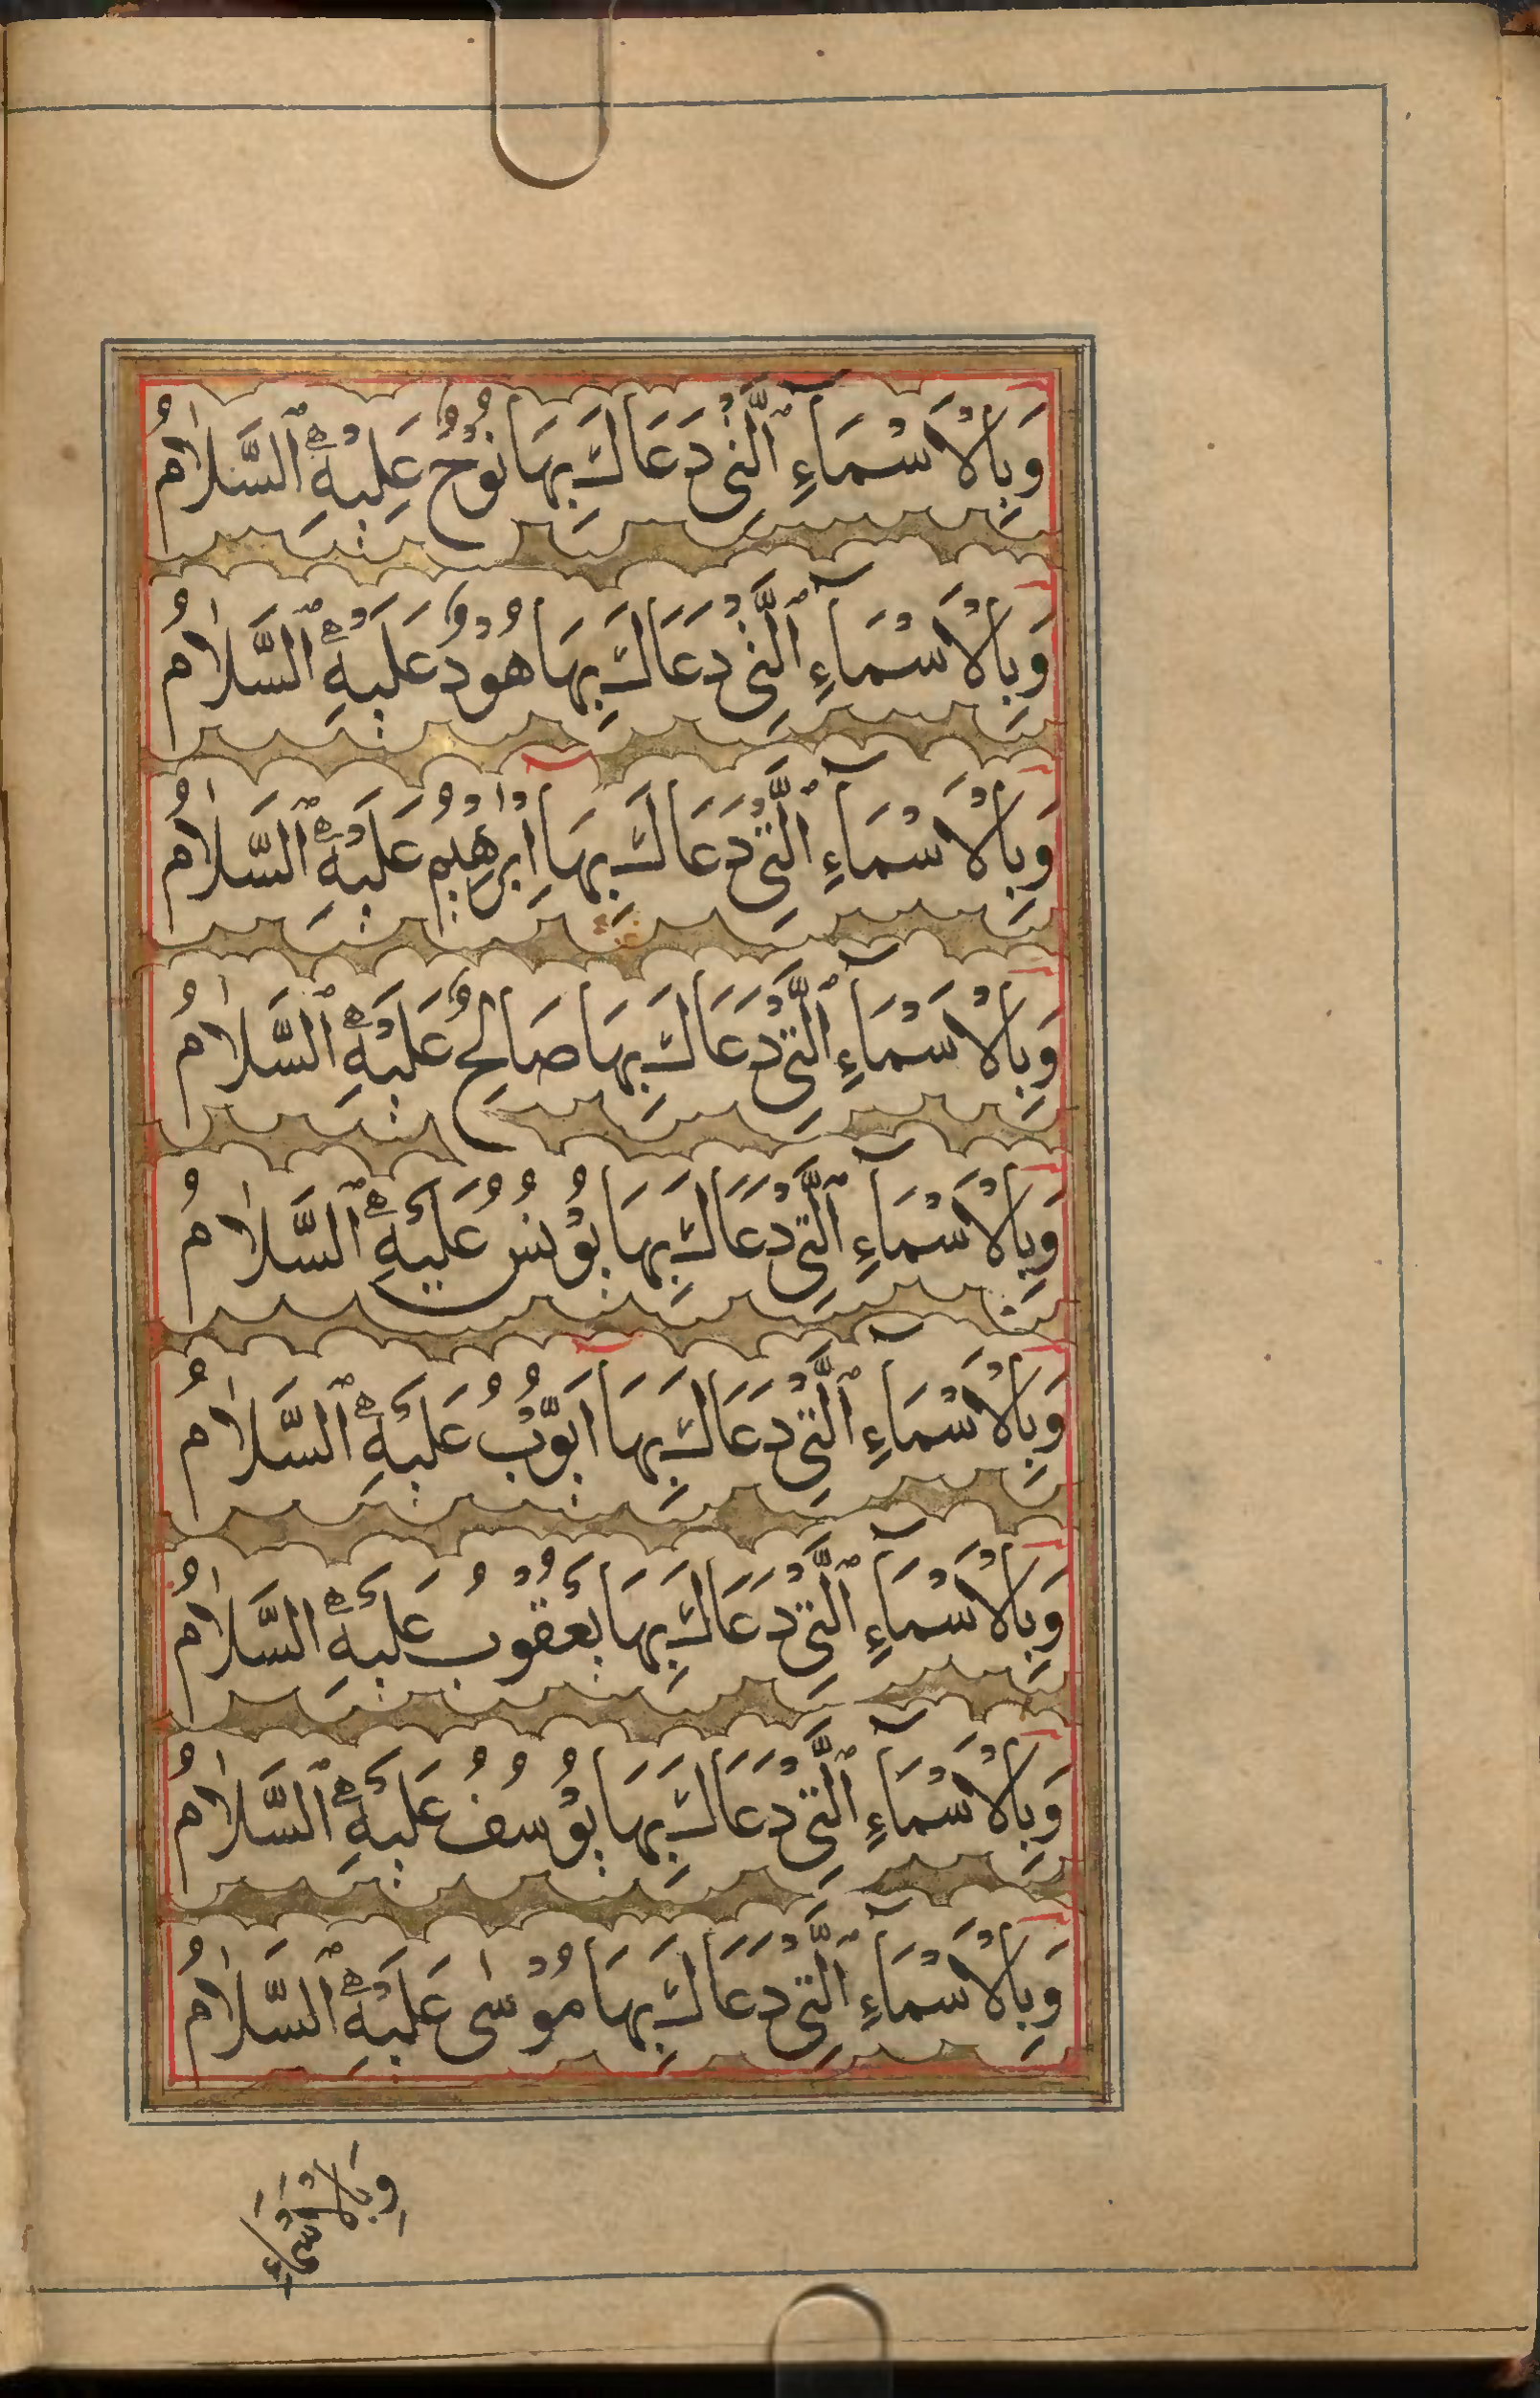 وَبِالْاَسْمَآءِ ٱلَّتِيْ دَعَاكَ بِهَا نُوْحٌ عَلَيْهِ ٱلسَّلَامُ
وَبِالْاَسْمَآءِ ٱلَّتِيْ دَعَاكَ بِهَا هُوْدٌ عَلَيْهِ ٱلسَّلَامُ
وَبِالْاَسْمَآءِ ٱلَّتِيْ دَعَاكَ بِهَا اِبْرٰهِيْمُ عَلَيْهِ ٱلسَّلَامُ
وَبِالْاَسْمَآءِ ٱلَّتِيْ دَعَاكَ بِهَا صَالِحٌ عَلَيْهِ ٱلسَّلَامُ
وَبِالْاَسْمَآءِ ٱلَّتِيْ دَعَاكَ بِهَا يُوْنُسُ عَلَيْهِ ٱلسَّلَامُ
وَبِالْاَسْمَآءِ ٱلَّتِيْ دَعَاكَ بِهَا اَيُّوْبُ عَلَيْهِ ٱلسَّلَامُ
وَبِالْاَسْمَآءِ ٱلَّتِيْ دَعَاكَ بِهَا يَعْقُوْبُ عَلَيْهِ السَّلَامُ
وَبِالْاَسْمَآءِ ٱلَّتِيْ دَعَاكَ بِهَا يُوْسُفُ عَلَيْهِ ٱلسَّلَامُ
وَبِالْاَسْمَآءِ ٱلَّتِيْ دَعَاكَ بِهَا مُوْسٰى عَلَيْهِ ٱلسَّلَامُ
وَبِالْاَسْمَاءِ